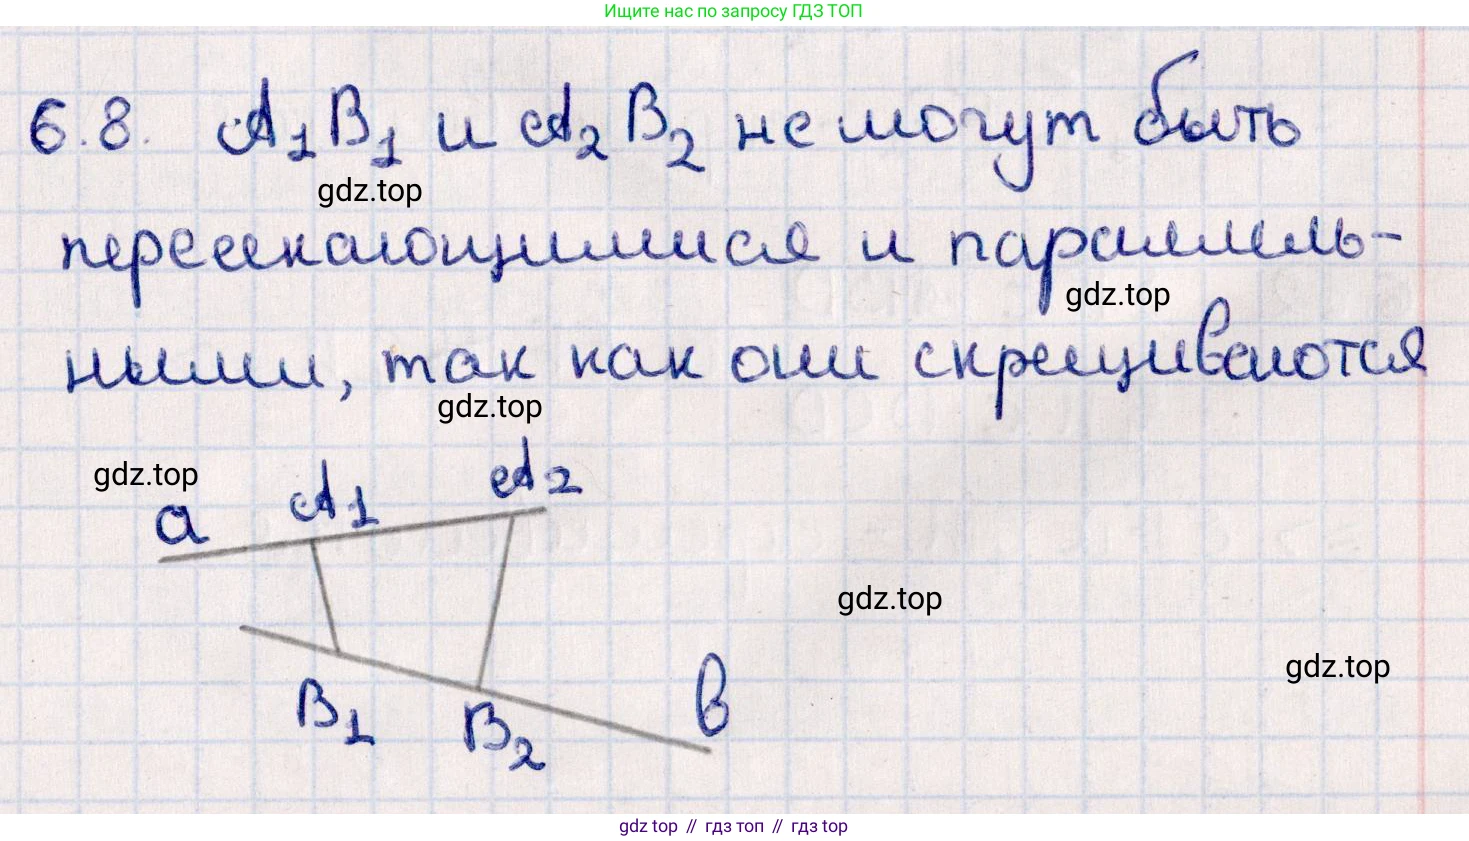 Ищите нас по запросу ГДЗ ТОП
6.8. A₁B₁ и A₂B₂ не могут быть
gdz.top
пересекающимися и параллель-
gdz.top
ными, так как они скрещиваются
gdz.top
gdz.top
a A₁ A₂
gdz.top
gdz.top
B₁ B₂ в
gdz top // гдз топ // гдз top